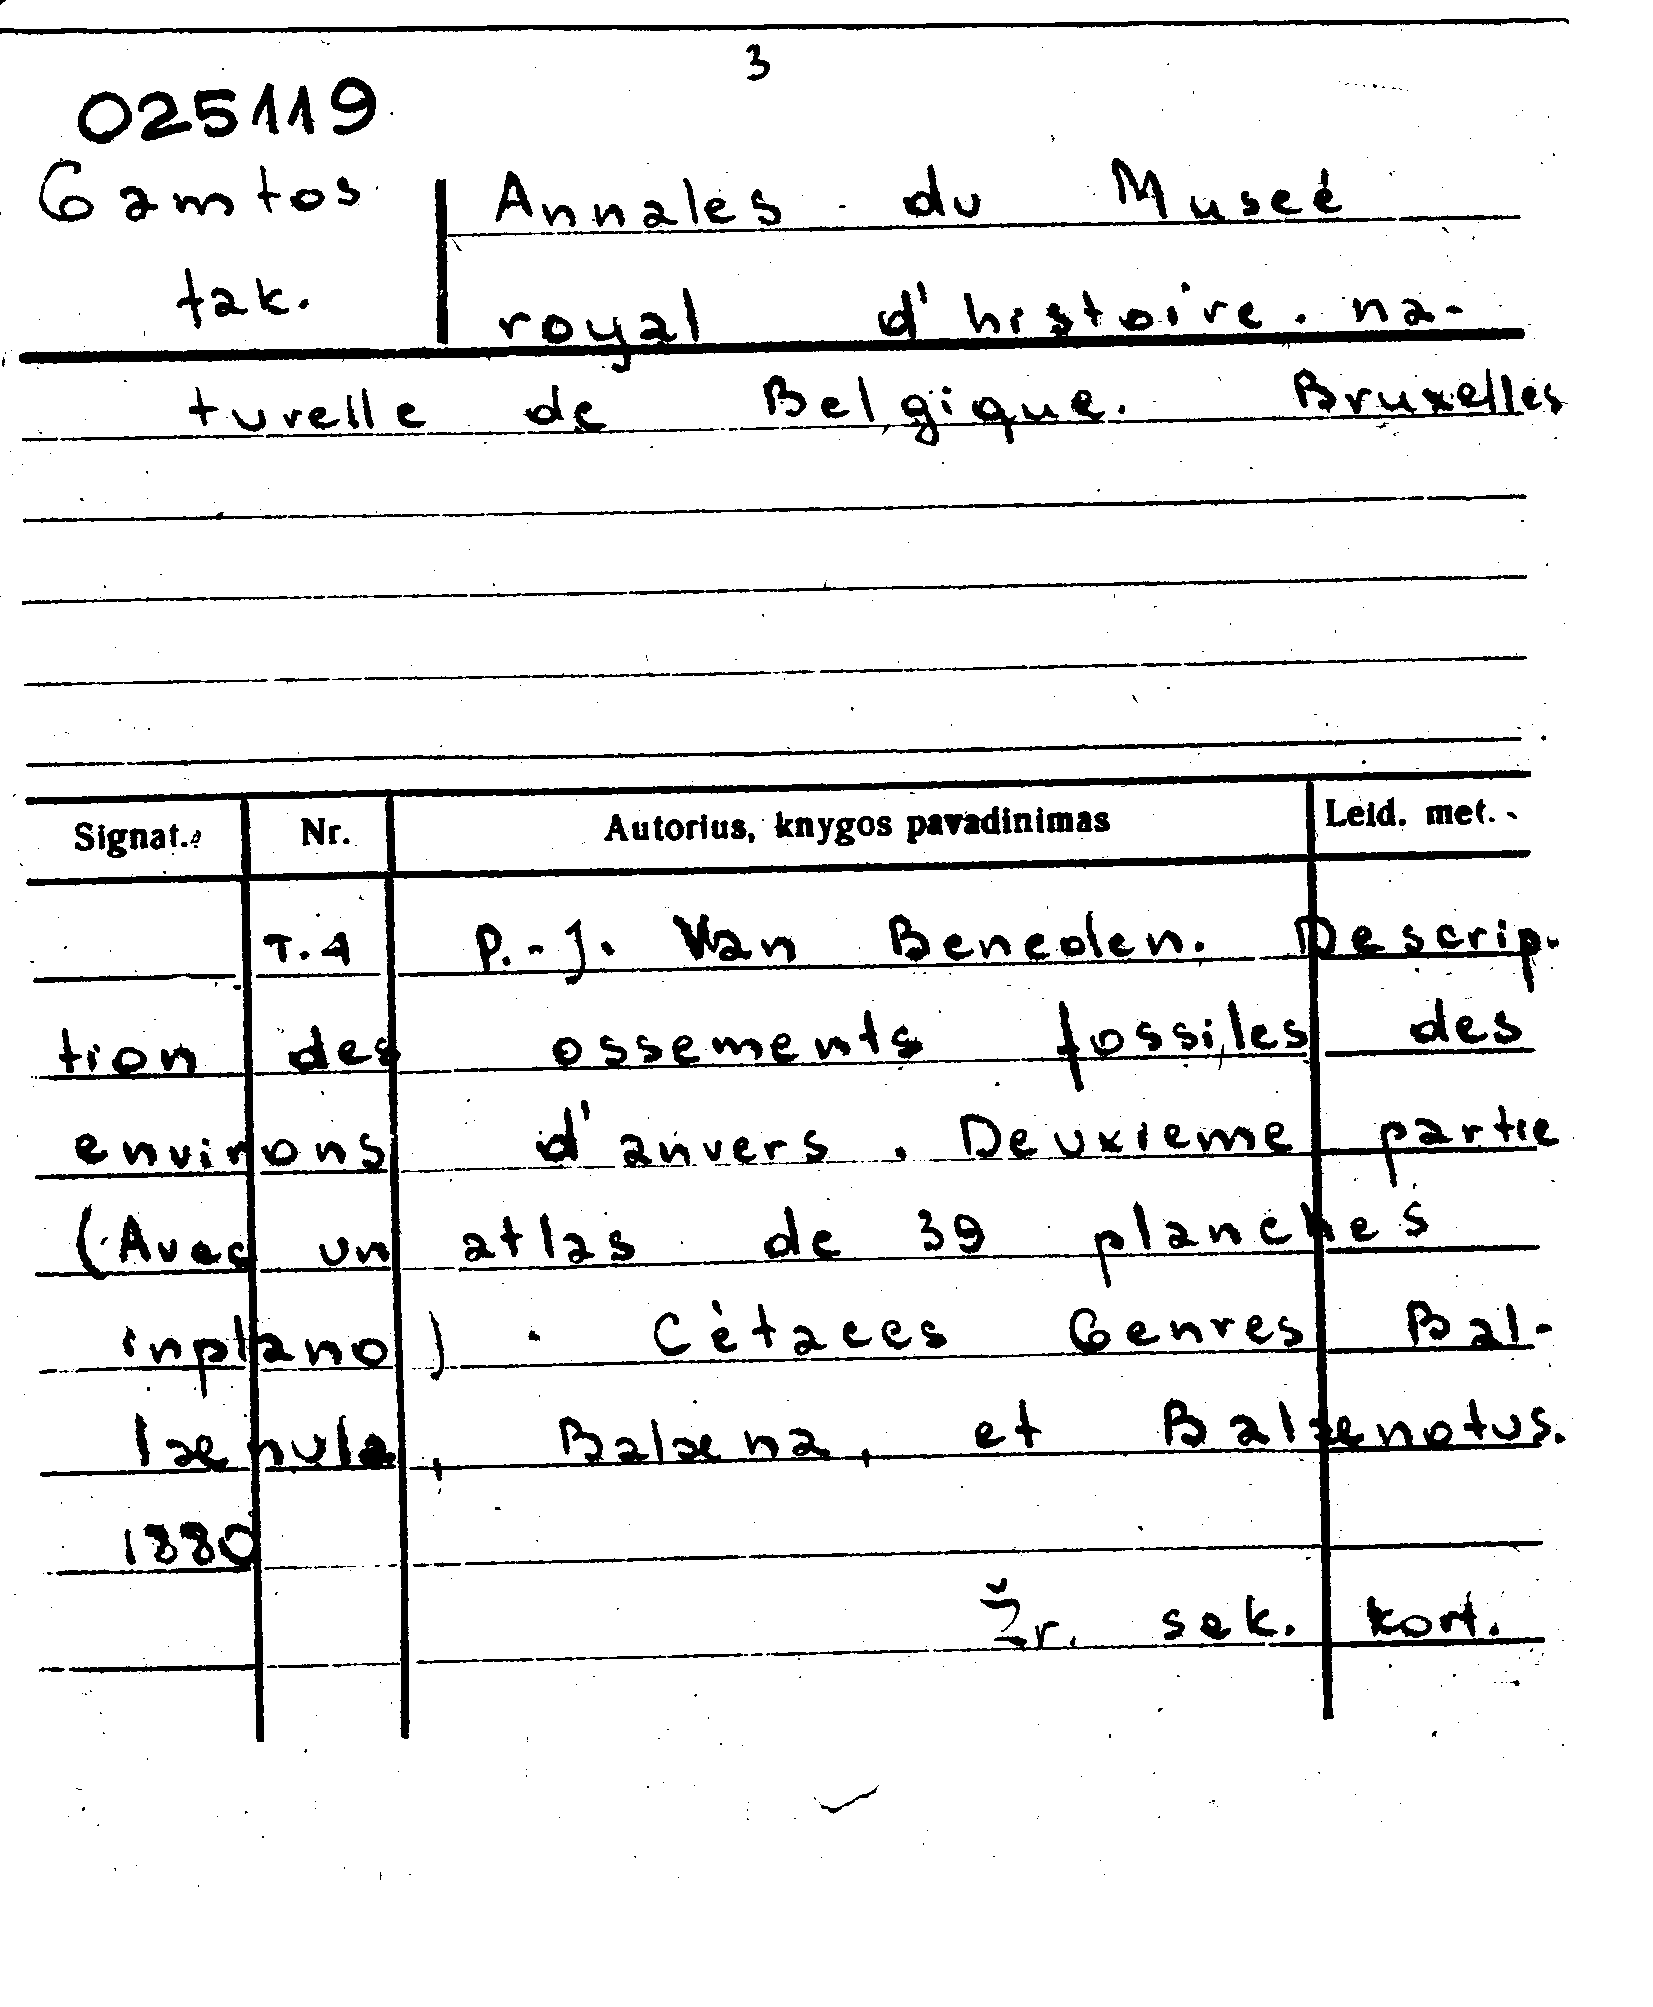 3
025119
Gamtos
tak.
Annales du Museé
royal d'histoire. na-
turelle de Belgique. Bruxelles
Signat. Nr. Autorius, knygos pavadinimas Leid. met.
T.4 P.-J. Van Beneden. Descrip-
tion des ossements fossiles des
environs d'anvers. Deuxieme partie
(Avec un atlas de 39 planches
inplano). Cètaces Genres Bal-
laenula, Balaena, et Balaenotus.
1880
Žr. sek. kort.